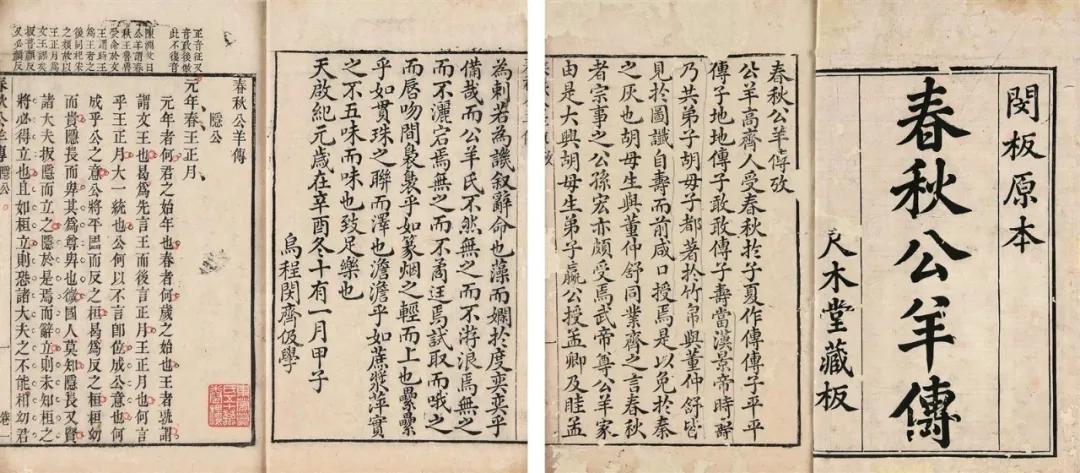 閔板原本
春秋公羊傳
尺木堂藏板
春秋公羊傳攷
公羊高齊人受春秋於子夏作傳傳子平平
傳子地地傳子敢敢傳子壽當漢景帝時壽
乃共弟子胡母子都著於竹帛與董仲舒皆
見於圖讖自壽而前咸口授焉是以免於秦
之灰也胡母生與董仲舒同業齊之言春秋
者宗事之公孫宏亦頗受焉武帝尊公羊家
由是大興胡母生弟子嬴公授孟卿及眭孟
為刺若為譏叙辭命也藻而嫻於度奕奕乎
備哉而公羊氏不然無之而不游浪焉無之
而不灑宕焉無之而不矞迋焉試取而哦之
而唇吻間裊裊乎如篆烟之輕而上也纍纍
乎如貫珠之聯而澤也澹澹乎如蔗漿萍實
之不五味而味也致足樂也
天啟紀元歲在辛酉冬十有一月甲子
烏程閔齊伋學
正音征又
音政後倣
此不復音
公羊謂春
秋王魯魯
受命於文
王謂時王
為王者之
後同杞宋
之類故以
王正月為
文王謬矣
春秋公羊傳
隱公
元年春王正月
元年者何君之始年也春者何歲之始也王者孰謂
謂文王也曷為先言王而後言正月王正月也何言
乎王正月大一統也公何以不言即位成公意也何
成乎公之意公將平國而反之桓曷為反之桓桓幼
而貴隱長而卑其為尊卑也微國人莫知隱長又賢
諸大夫扳隱而立之隱於是焉而辭立則未知桓之
將必得立也且如桓立則恐諸大夫之不能相幼君
春秋公羊傳 隱公 卷一